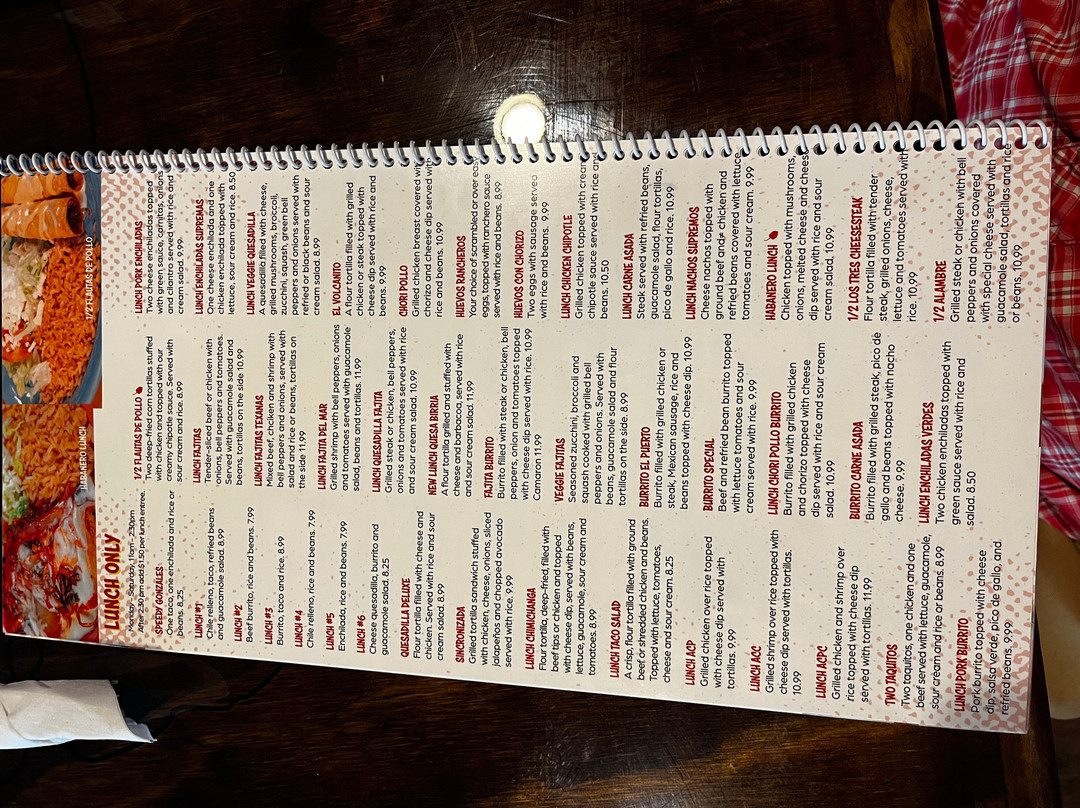 HABANERO LUNCH
1/2 FLAUTAS DE POLLO
LUNCH ONLY
Monday - Saturday, 11am - 2:30pm
After 2:30 pm add $1.50 per lunch entree.
SPEEDY GONZALES
One taco, one enchilada and rice or
beans. 8.25
LUNCH #1
Chile relleno, taco, refried beans
and guacamole salad. 8.99
LUNCH #2
Beef burrito, rice and beans. 7.99
LUNCH #3
Burrito, taco and rice. 8.99
LUNCH #4
Chile relleno, rice and beans. 7.99
LUNCH #5
Enchilada, rice and beans. 7.99
LUNCH #6
Cheese quesadilla, burrito and
guacamole salad. 8.25
QUESADILLA DELUXE
Flour tortilla filled with cheese and
chicken. Served with rice and sour
cream salad. 8.99
SINCRONIZADA
Grilled tortilla sandwich stuffed
with chicken, cheese, onions, sliced
jalapeños and chopped avocado
served with rice. 9.99
LUNCH CHIMICHANGA
Flour tortilla, deep-fried, filled with
beef tips or chicken and topped
with cheese dip, served with beans,
lettuce, guacamole, sour cream and
tomatoes. 8.99
LUNCH TACO SALAD
A crisp, flour tortilla filled with ground
beef or shredded chicken and beans.
Topped with lettuce, tomatoes,
cheese and sour cream. 8.25
LUNCH ACP
Grilled chicken over rice topped
with cheese dip served with
tortillas. 9.99
LUNCH ACC
Grilled shrimp over rice topped with
cheese dip served with tortillas.
10.99
LUNCH ACPC
Grilled chicken and shrimp over
rice topped with cheese dip
served with tortillas. 11.99
TWO TAQUITOS
Two taquitos, one chicken and one
beef served with lettuce, guacamole,
sour cream and rice or beans. 8.99
LUNCH PORK BURRITO
Pork burrito topped with cheese
dip, salsa verde, pico de gallo, and
refried beans. 9.99
1/2 FLAUTAS DE POLLO
Two deep-fried corn tortillas stuffed
with chicken and topped with our
creamy chipotle sauce. Served with
sour cream and rice. 8.99
LUNCH FAJITAS
Tender-sliced beef or chicken with
onions, bell peppers and tomatoes.
Served with guacamole salad and
beans, tortillas on the side 10.99
LUNCH FAJITAS TEXANAS
Mixed beef, chicken and shrimp with
bell peppers and onions, served with
salad and rice or beans, tortillas on
the side 11.99
LUNCH FAJITA DEL MAR
Grilled shrimp with bell peppers, onions
and tomatoes served with guacamole
salad, beans and tortillas. 11.99
LUNCH QUESADILLA FAJITA
Grilled steak or chicken, bell peppers,
onions and tomatoes served with rice
and sour cream salad. 10.99
NEW LUNCH QUESA BIRRIA
A flour tortilla grilled and stuffed with
cheese and barbacoa, served with rice
and sour cream salad. 11.99
FAJITA BURRITO
Burrito filled with steak or chicken, bell
peppers, onion and tomatoes topped
with cheese dip served with rice. 10.99
Camaron 11.99
VEGGIE FAJITAS
Seasoned zucchini, broccoli and
squash cooked with grilled bell
peppers and onions. Served with
beans, guacamole salad and flour
tortillas on the side. 8.99
BURRITO EL PUERTO
Burrito filled with grilled chicken or
steak, Mexican sausage, rice and
beans topped with cheese dip. 10.99
BURRITO SPECIAL
Beef and refried bean burrito topped
with lettuce tomatoes and sour
cream served with rice. 9.99
LUNCH CHORI POLLO BURRITO
Burrito filled with grilled chicken
and chorizo topped with cheese
dip served with rice and sour cream
salad. 10.99
BURRITO CARNE ASADA
Burrito filled with grilled steak, pico de
gallo and beans topped with nacho
cheese. 9.99
LUNCH ENCHILADAS VERDES
Two chicken enchiladas topped with
green sauce served with rice and
salad. 8.50
LUNCH PORK ENCHILADAS
Two cheese enchiladas topped
with green sauce, carnitas, onions
and cilantro served with rice and
cream salad. 9.99
LUNCH ENCHILADAS SUPREMAS
One cheese enchilada and one
chicken enchilada topped with
lettuce, sour cream and rice. 8.50
LUNCH VEGGIE QUESADILLA
A quesadilla filled with cheese,
grilled mushrooms, broccoli,
zucchini, squash, green bell
peppers and onions served with
refried or black beans and sour
cream salad. 8.99
EL VOLCANITO
A flour tortilla filled with grilled
chicken or steak topped with
cheese dip served with rice and
beans. 9.99
CHORI POLLO
Grilled chicken breast covered with
chorizo and cheese dip served with
rice and beans. 10.99
HUEVOS RANCHEROS
Your choice of scrambled or over easy
eggs, topped with ranchero sauce
served with rice and beans. 8.99
HUEVOS CON CHORIZO
Two eggs with sausage served
with rice and beans. 9.99
LUNCH CHICKEN CHIPOTLE
Grilled chicken topped with cream
chipotle sauce served with rice and
beans. 10.50
LUNCH CARNE ASADA
Steak served with refried beans,
guacamole salad, flour tortillas,
pico de gallo and rice. 10.99
LUNCH NACHOS SUPREMOS
Cheese nachos topped with
ground beef and≠ chicken and
refried beans covered with lettuce,
tomatoes and sour cream. 9.99
HABANERO LUNCH
Chicken topped with mushrooms,
onions, melted cheese and cheese
dip served with rice and sour
cream salad. 10.99.
1/2 LOS TRES CHEESESTEAK
Flour tortilla filled with tender
steak, grilled onions, cheese,
lettuce and tomatoes served with
rice. 10.99
1/2 ALAMBRE
Grilled steak or chicken with bell
peppers and onions covered
with special cheese served with
guacamole salad, tortillas and rice
or beans. 10.99